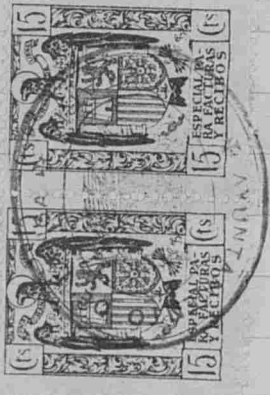 15 Cts
ESPECIAL PA-
RA FACTURAS
Y RECIBOS
15 Cts
15 Cts
ESPECIAL PA-
RA FACTURAS
Y RECIBOS
15 Cts
AYUNT